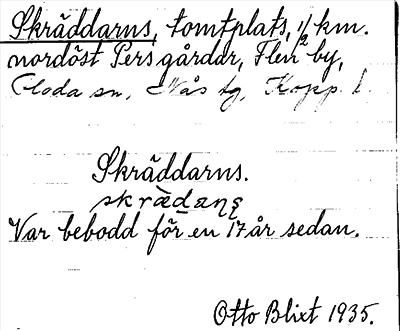 Skräddarns, tomtplats, 1/2 km.
nordöst Persgårdar, Flen by,
Floda sn, Nås tg, Kopp. l.
Skräddarns.
skrädaņę
Var bebodd för en 17 år sedan.
Otto Blixt 1935.